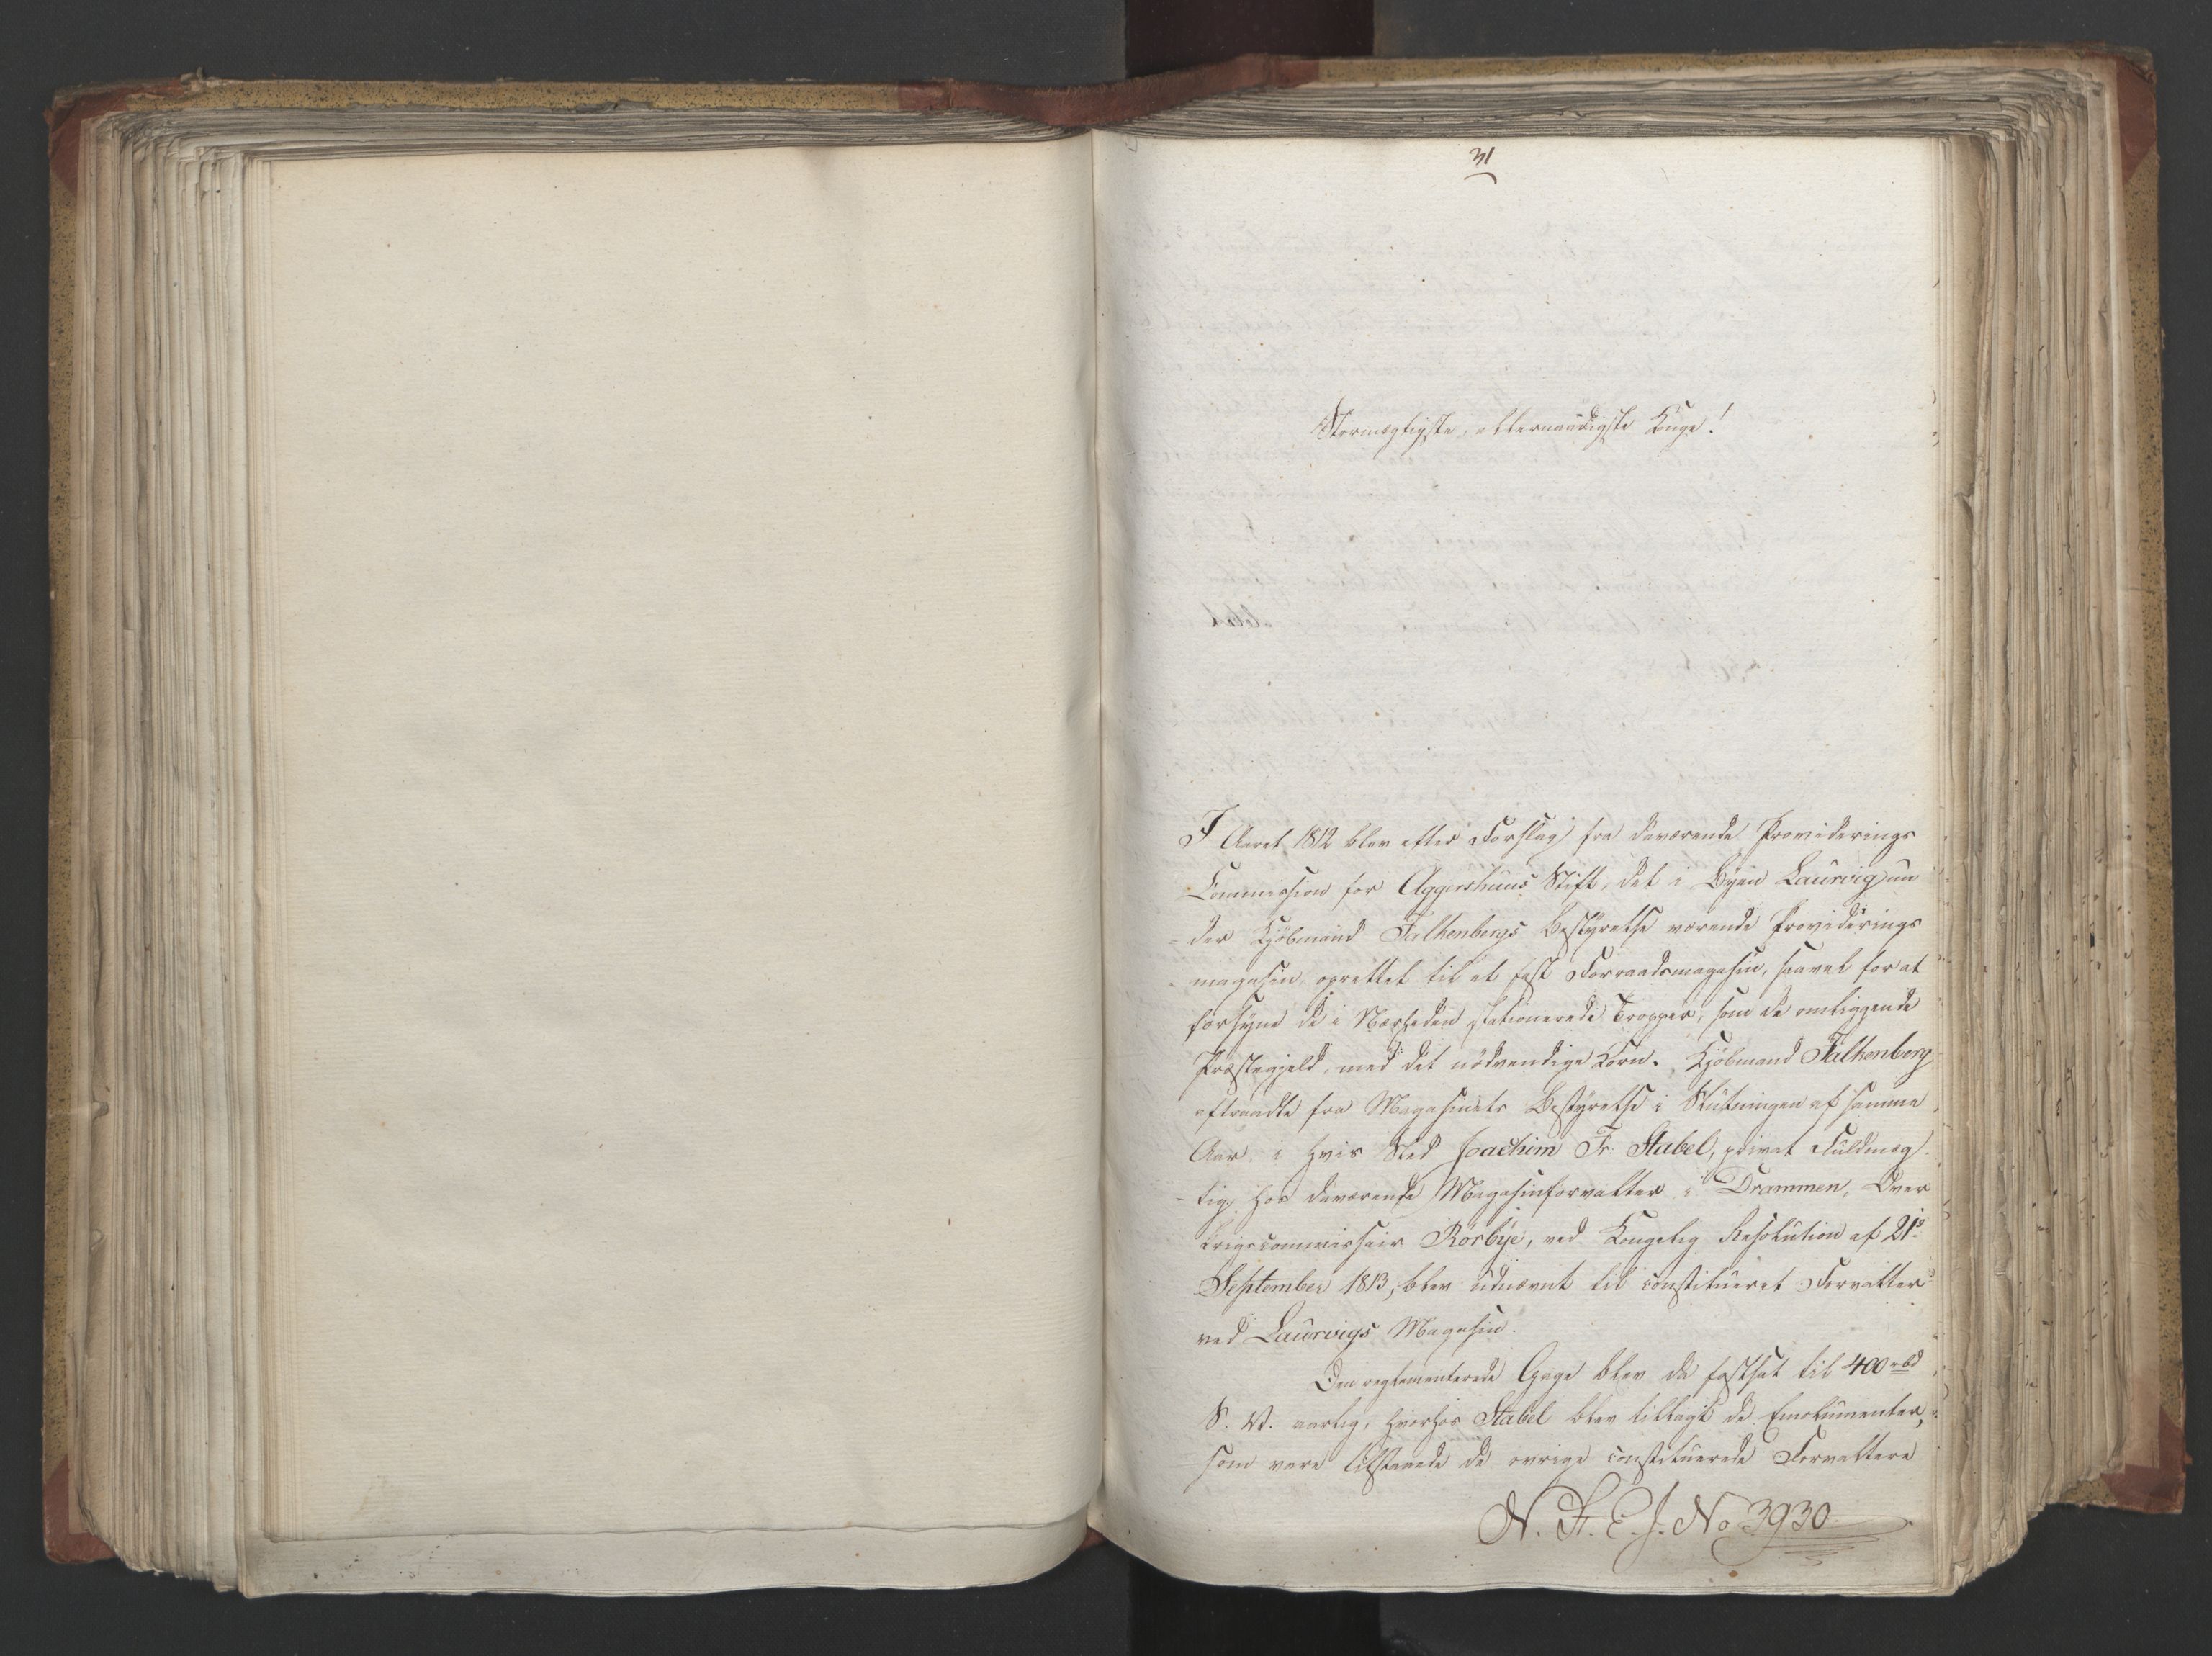 31
Stormægtigste, allernaadigste Konge!
I Aaret 1812 blev efter Forslag fra daværende Providerings
Commission for Aggershuus Stift, det i Byen Laurvig un
-der Kjöbmand Falkenbergs Bestyrelse værende Providerings
magasin, oprettet til et fast Forraadsmagasin, saavel for at
forsyne de i Nærheden stationerede Tropper, som de omliggende
Præstegjeld, med det nödvendige Korn. Kjöbmand Falkenberg
aftraadte fra Magasinets Bestyrelse i Slutningen af samme
Aar, i hvis Sted Joachim Fr: Stabel, privat Fuldmæg
-tig hos daværende Magasinforvalter i Drammen, Over
krigscommissair Rörbye, ved Kongelig Resolution af 21de
September 1813, blev udnævnt til constitueret Forvalter
ved Laurvigs Magasin.
Den reglementerede Gage blev da fastsat til 400 rbd
S. V. aarlig, hvorhos Stabel blev tillagt de Emolumenter,
som vare tilstaaede de øvrige constituerede Forvaltere
N. F. C. J. No 3930